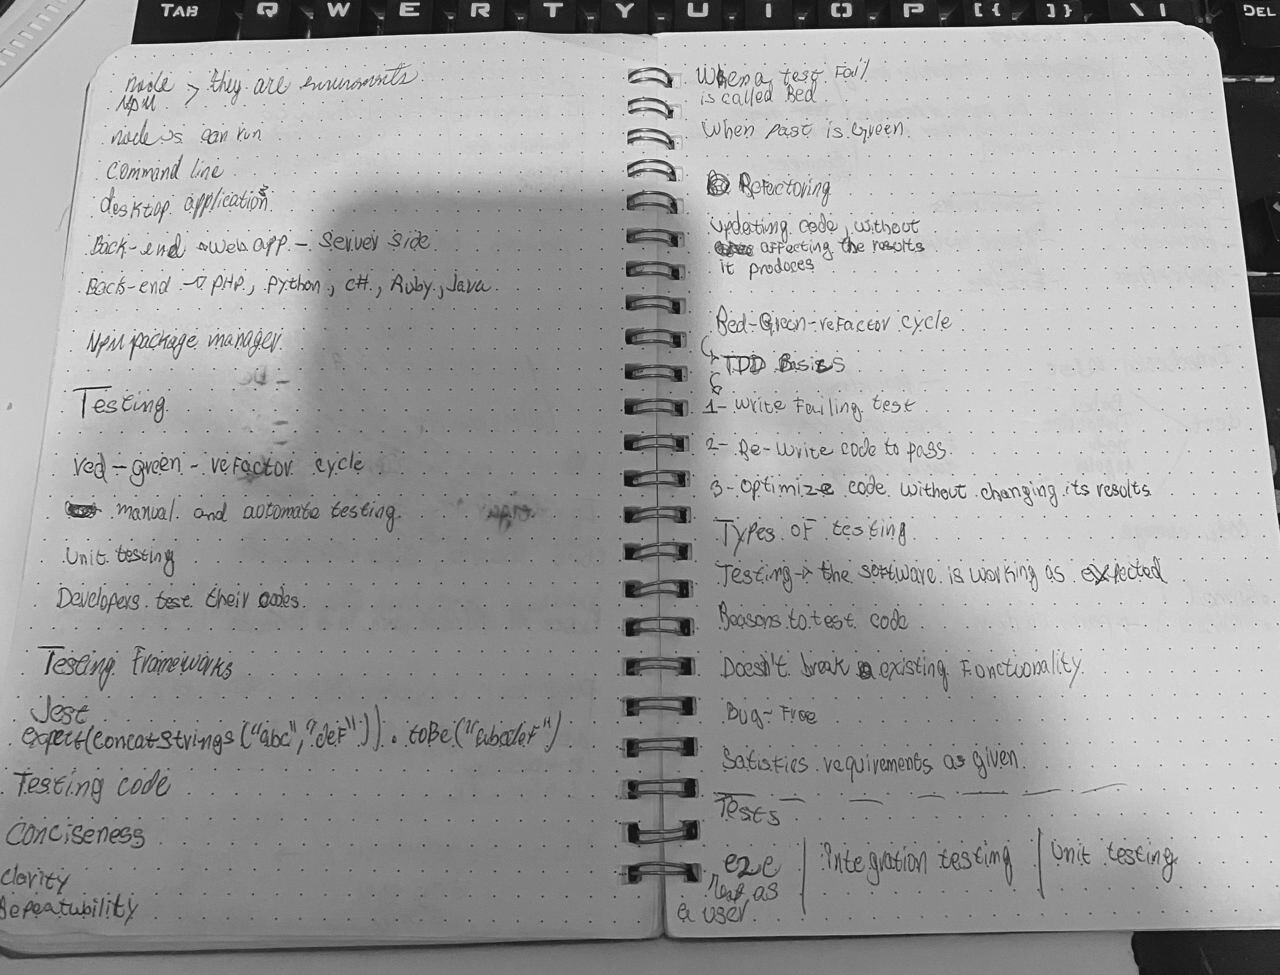 TAB Q W E R T Y U I O P [{ ]} \| DEL
node
NPM > they are environments
node js can run
command line
desktop applications
Back-end web app - server side
Back-end -> PHP, Python, C#, Ruby, Java
NPM package manager
Testing
red-green-refactor cycle
manual and automate testing
Unit testing
Developers test their codes
Testing Frameworks
Jest
expect(concatStrings("abc","def")).toBe("abcdef")
Testing code
Conciseness
Clarity
Repeatability
When a test Fail
is called Red
When past is Green
Refectoring
updating code, without
affecting the results
it produces
Red-Green-refactor cycle
TDD Basics
1- write Failing test
2- Re-write code to pass
3- Optimize code without changing its results
Types of testing
Testing -> the software is working as expected
Reasons to test code
Doesn't break existing Functionality
Bug-Free
Satisfies requirements as given
Tests
e2e | Integration testing | Unit testing
as
a user